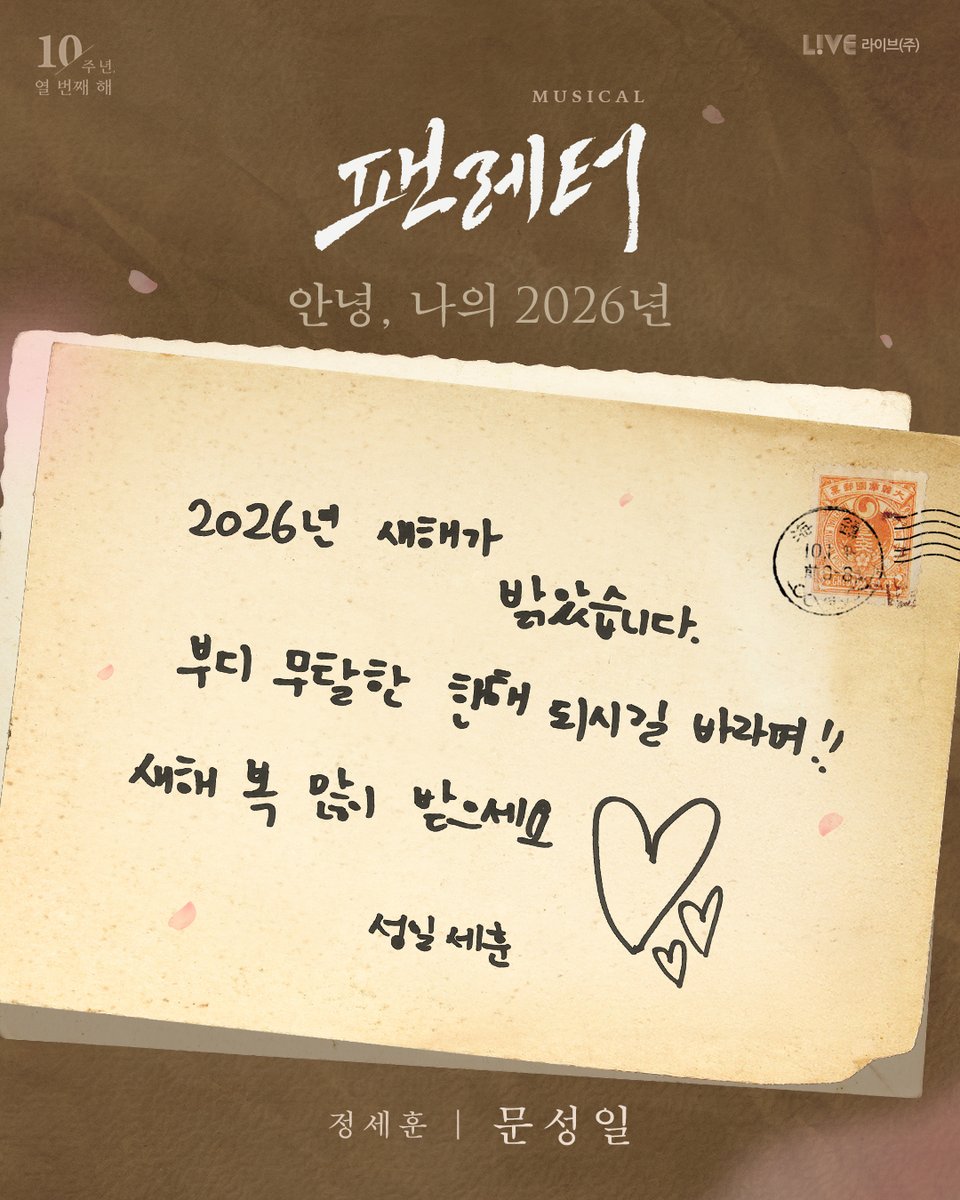 10주년,
열 번째 해
LIVE 라이브(주)
MUSICAL
팬레터
안녕, 나의 2026년
2026년 새해가
밝았습니다.
부디 무탈한 한해 되시길 바라며!!
새해 복 많이 받으세요
성일 세훈
정세훈 | 문성일